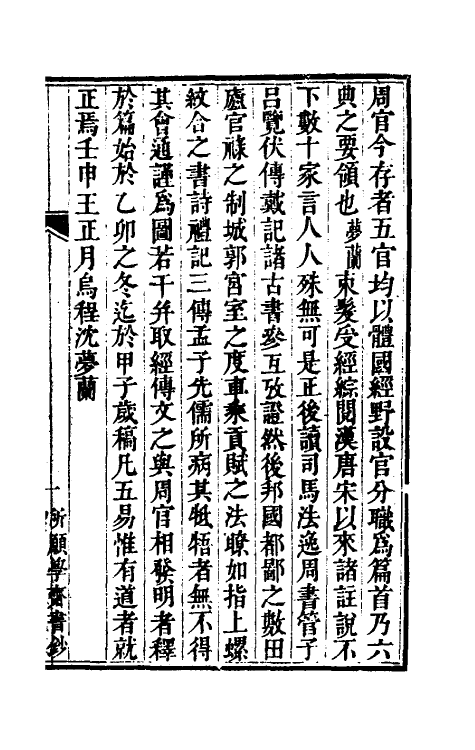 周官今存者五官均以體國經野設官分職爲篇首乃六
典之要領也夢蘭束髮受經綜閱漢唐宋以來諸註說不
下數十家言人人殊無可是正後讀司馬法逸周書管子
吕覽伏傳戴記諸古書參互攷證然後邦國都鄙之數田
廬官祿之制城郭宮室之度車乘貢賦之法瞭如指上螺
紋合之書詩禮記三傳孟子先儒所病其牴牾者無不得
其會通謹爲圖若干幷取經傳文之與周官相發明者釋
於篇始於乙卯之冬迄於甲子歲稿凡五易惟有道者就
正焉壬申王正月烏程沈夢蘭
一 所願學齋書鈔